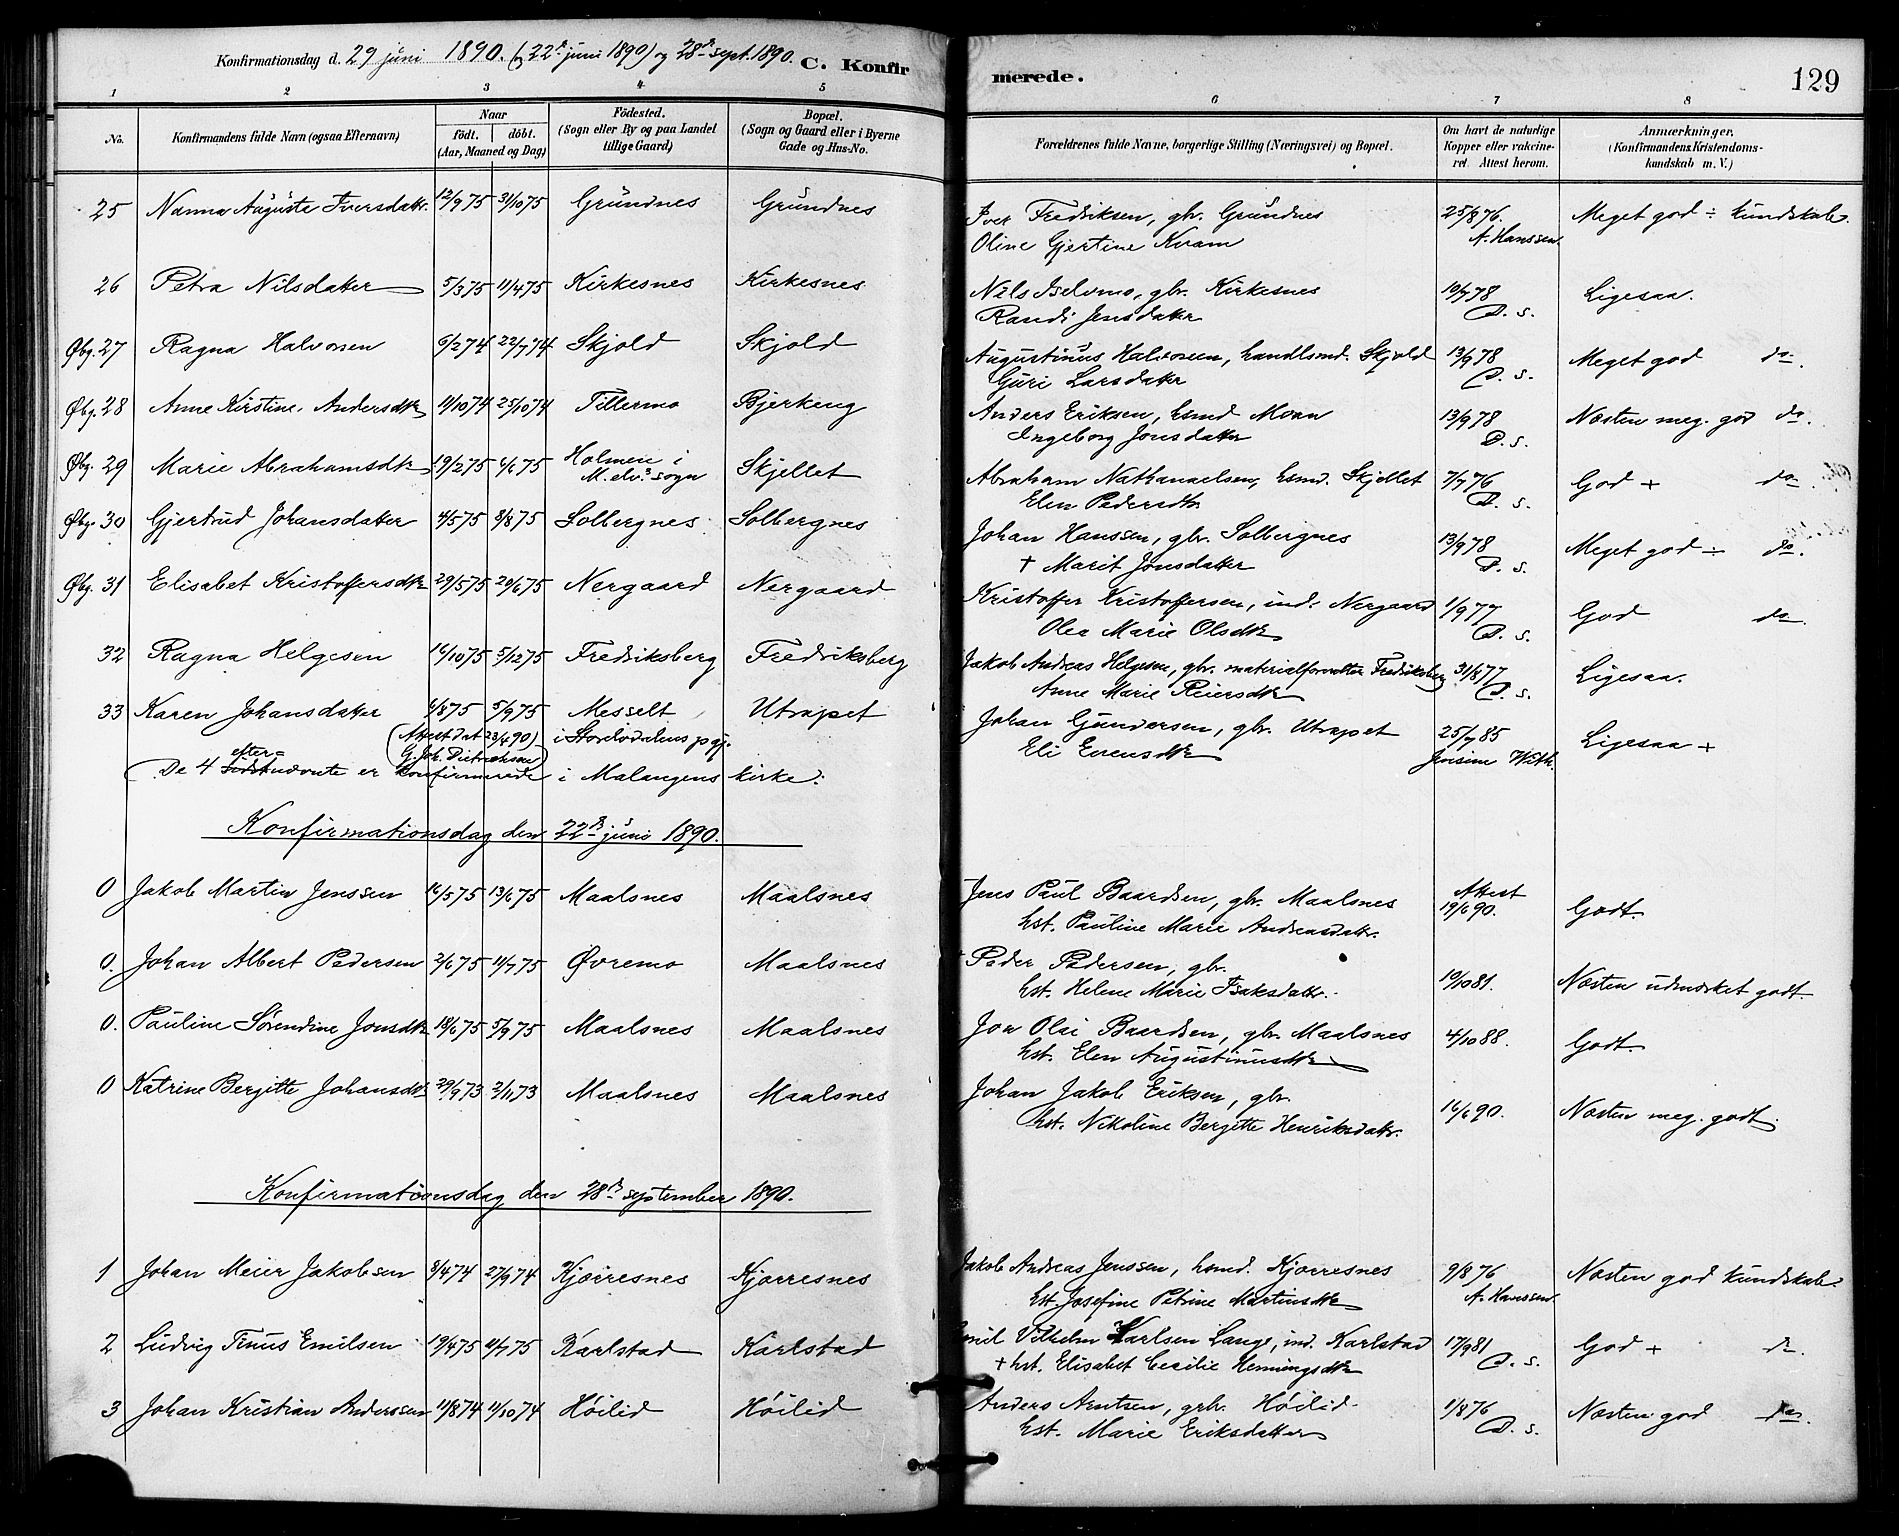 Konfirmationsdag d. 29 juni 1890. (22de juni 1890) og 28de sept. 1890. C. Konfir
merede. 129
1 2 3 4 5
6 7 8
No. Konfirmandens fulde Navn (ogsaa Efternavn) Naar födt. döbt. (Aar, Maaned og Dag) Födested. (Sogn eller By og paa Landet tillige Gaard) Bopæl. (Sogn og Gaard eller i Byerne Gade og Hus-No.
Forældrenes fulde Navne, borgerlige Stilling (Næringsvei) og Bopæl. Om havt de naturlige Kopper eller vakcineret. Attest herom. Anmærkninger. (Konfirmandens Kristendomskundskab m. V.)
25 Nanna Auguste Iversdattr. 12/9 75 31/10 75 Grundnes Grundnes
Iver Fredriksen, gbr. Grundnes 25/8 76. Meget god ÷ kundskab.
Oline Gjertine Kvam A. Hanssen
26 Petra Nilsdatter 5/3 75 11/4 75 Kirkesnes Kirkesnes
Nils Iselvmo, gbr. Kirkesnes 10/7 78 Ligesaa.
Randi Jensdatter D. s.
Øbg. 27 Ragna Halvorsen 6/2 74 22/7 74 Skjold Skjold
Augustinus Halvorsen, handlsmd. Skjold 13/9 78 Meget god do.
Guri Larsdatter D. s.
Øbg. 28 Anne Kirstine Andersdtr 11/10 74 25/10 74 Tillermo Bjerkeng
Anders Eriksen, hsmd Moan 13/9 78 Næsten meg. god do.
Ingeborg Jonsdatter D. s.
Øbg. 29 Marie Abrahamsdtr 19/2 75 6/6 75 Holmen i M.elv. sogn Skjellet
Abraham Nathanaelsen, hsmd. Skjellet 7/7 76 God + do
Elen Pedersdtr D. s.
Øbg. 30 Gjertrud Johansdatter 4/5 75 8/8 75 Solbergnes Solbergnes
Johan Hanssen, gbr. Solbergnes 13/9 78 Meget god ÷ do.
+ Marit Jonsdatter D. s.
Øbg. 31 Elisabet Kristoffersdtr 29/5 75 20/6 75 Nergaard Nergaard
Kristoffer Kristoffersen, ind. Nergaard 1/9 77 God do
Olea Marie Olsdtr D. s.
32 Ragna Helgesen 16/10 75 5/12 75 Fredriksberg Fredriksberg
Jakob Andreas Helgesen, gbr. materialforvalter Fredriksberg 31/8 77 Ligesaa.
Anne Marie Reiersdtr D. s.
33 Karen Johansdatter 6/8 75 5/9 75 Messelt Utrapet
(Attest dat 23/4 90) i Storelvdalens pgj.
G. Joh. Dietrichson)
Johan Gundersen, gbr. Utrapet 25/7 85 Ligesaa +
Eli Evensdtr Jensine With.
De 4 efternævnte er konfirmerede i Malangens kirke:
Konfirmationsdag den 22de juni 1890.
0 Jakob Martin Jenssen 16/5 75 13/6 75 Maalsnes Maalsnes
Jens Paul Baardsen, gbr. Maalsnes Attest 19/6 90. Godt.
hst. Pauline Marie Andreasdattr.
0. Johan Albert Pedersen 2/6 75 11/7 75 Øvremo Maalsnes
Peder Pedersen, gbr. 19/10 81. Næsten udmærket godt.
hst. Helene Marie Isaksdattr.
0. Pauline Sørendine Jonsdtr 18/6 75 5/9 75 Maalsnes Maalsnes
Jon Olai Baardsen, gbr. Maalsnes 4/10 88. Godt.
hst. Elen Augustinusdtr
0 Katrine Bergitte Johansdtr 29/9 73 2/11 73 Maalsnes Maalsnes
Johan Jakob Eriksen, gbr. 16/6 90. Næsten meg. godt.
hst. Nikoline Bergitte Henriksdattr.
Konfirmationsdag den 28de september 1890.
1 Johan Meier Jakobsen 3/4 74 27/9 74 Kjærresnes Kjærresnes
Jakob Andreas Jenssen, hsmd. Kjærresnes 9/8 76 Næsten god kundskab.
hst. Josefine Petrine Martinsdtr A. Hanssen
2 Ludvig Tinus Emilsen 19/4 75 11/7 75 Karlstad Karlstad
Emil Vilhelm Karlsen Lange, ind. Karlstad 17/9 81 God + do.
+ hst. Elisabet Cecilie Henningsdtr D. s.
3 Johan Kristian Anderssen 11/8 74 11/10 74 Høilid Høilid
Anders Arntsen, gbr. Høilid 1/8 76 Næsten god do
hst. Marie Eriksdatter D. s.